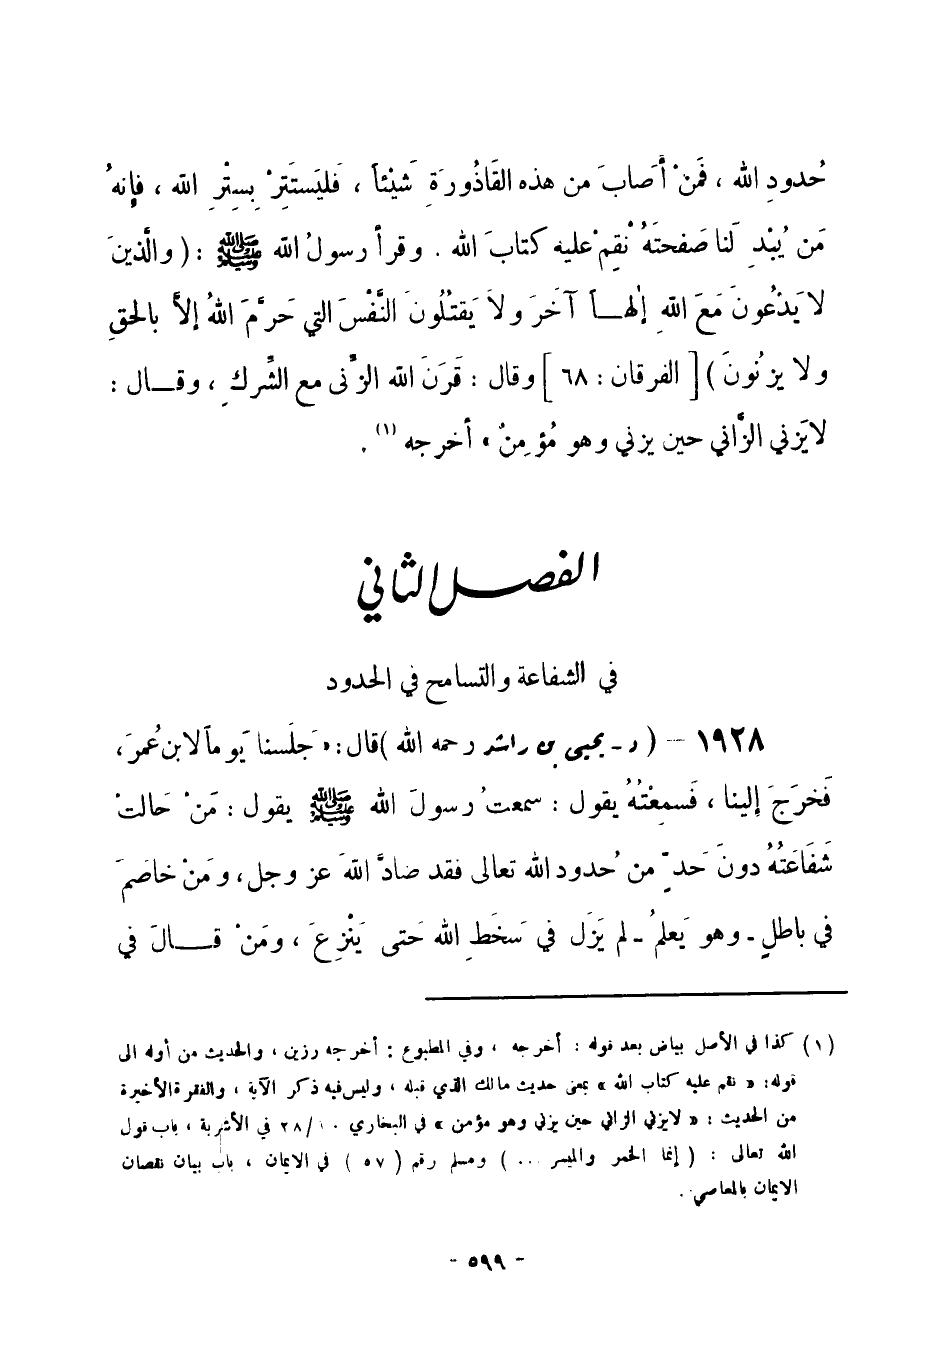 حُدودِ الله ، فَمَنْ أَصابَ من هذه القَاذُورَةِ شَيْئاً ، فَليَستَتِرْ بِستْرِ الله ، فإنهُ
مَن يُبْدِ لَنا صَفحتَهُ نُقِمْ عليه كتابَ الله . وقرأ رسولُ الله ﷺ : ( والَّذينَ
لا يَدْعُونَ مَعَ اللهِ إلهـــاً آخَرَ ولاَ يَقتُلُونَ النَّفْسَ التي حَرَّمَ اللهُ إلاَّ بالحقِ
ولا يزنُونَ ) [ الفرقان : ٦٨ ] وقال : قَرَنَ الله الزِّنى مع الشِّركِ ، وقـــال :
لا يَزني الزَّاني حين يزني وهو مُؤمِنٌ » أخرجه (١) .
الفصل الثاني
في الشفاعة والتسامح في الحدود
١٩٢٨ – ( د - يحيى بن راشد رحمه الله ) قال : « جَلَسنا يَوماً لابن عُمرَ ،
فَخرَجَ إلينا ، فَسمِعْتُهُ يقول : سمعتُ رسولَ الله ﷺ يقول : مَنْ حَالتْ
شَفَاعَتُهُ دونَ حَدٍّ من حُدود الله تعالى فقد ضادَّ اللهَ عز وجل ، ومَنْ خاصَمَ
في باطلٍ - وهو يَعلمُ - لم يَزَل في سَخَطِ الله حَتى يَنْزِعَ ، ومَنْ قـــالَ في
(١) كذا في الأصل بياض بعد قوله : أخرجه ، وفي المطبوع : أخرجه رزين ، والحديث من أوله الى
قوله : « نقم عليه كتاب الله » بمعنى حديث مالك الذي قبله ، وليس فيه ذكر الآية ، والفقرة الأخيرة
من الحديث : « لا يزني الزاني حين يزني وهو مؤمن » في البخاري ١٠/٢٨ في الأشربة ، باب قول
الله تعالى : ( إنما الخمر والميسر ... ) ومسلم رقم ( ٥٧ ) في الايمان ، باب بيان نقصان
الايمان بالمعاصي .
- ٥٩٩ -